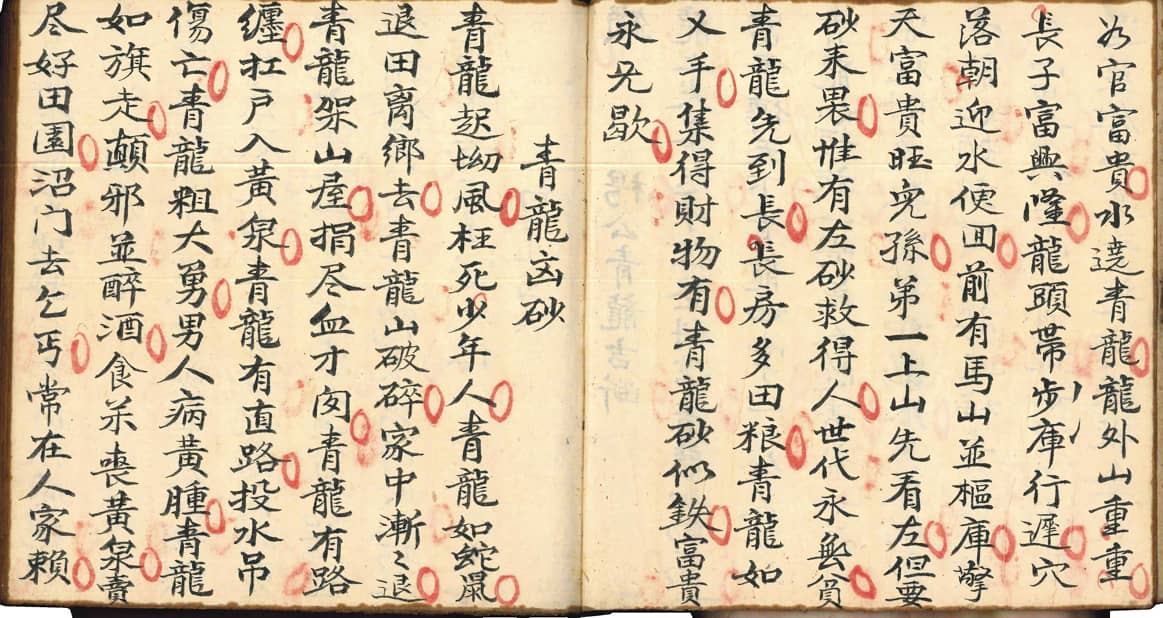 為官富貴水遶青龍龍外山重重
長子富興隆龍頭帶步庫行遲穴
落朝迎水便囬前有馬山並樞庫擎
天富貴旺兒孫弟一上山先看左但要
砂來畏惟有左砂救得人世代永無貧
青龍先到長長房多田粮青龍如
乂手集得財物有青龍砂似鉄富貴
永无歇
青龍凶砂
青龍起坳風枉死少年人青龍如蛇鼠
退田离鄉去青龍山破碎家中漸〻退
青龍架山屋捐尽血才囱青龍有路
纏扛戸入黃泉青龍有直路投水吊
傷亡青龍粗大勇男人病黃腫青龍
如旗走顛邪並醉酒食茶喪黃泉賣
尽好田園沼门去乞丐常在人家賴